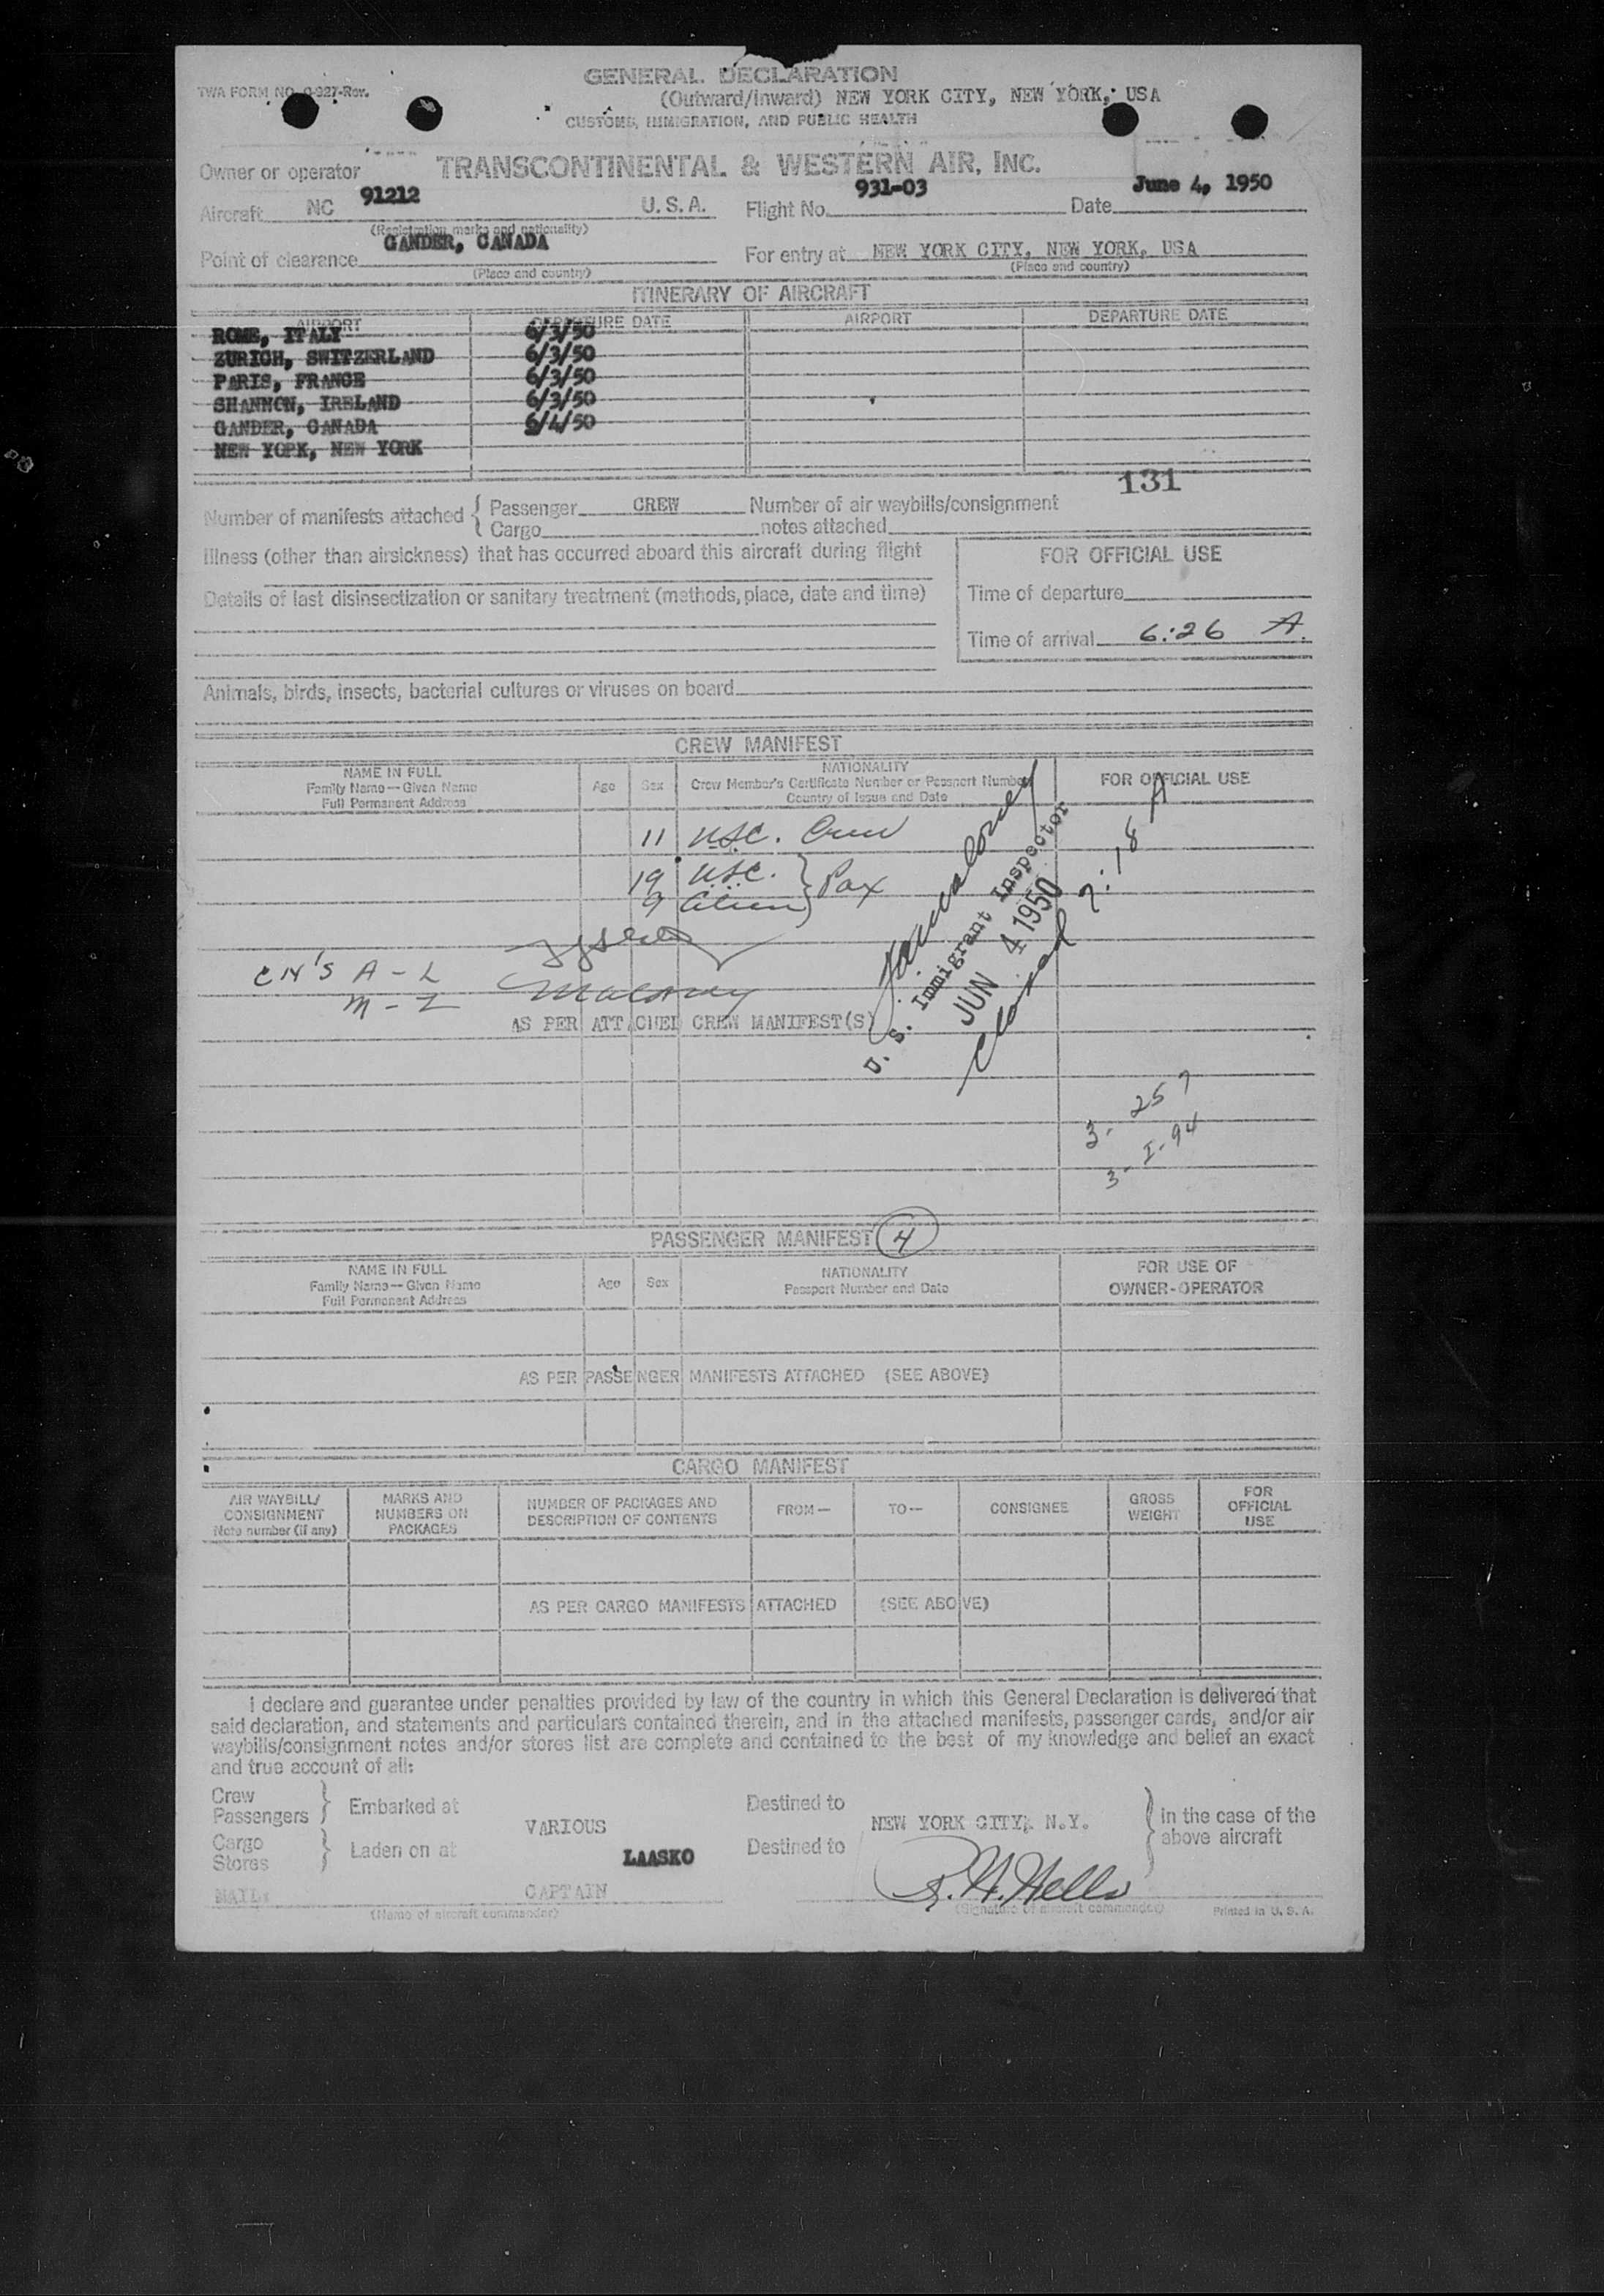 GENERAL DECLARATION
TWA FORM NO. 0-927-Rev.
(Outward/Inward) NEW YORK CITY, NEW YORK, USA
CUSTOMS, IMMIGRATION, AND PUBLIC HEALTH
Owner or operator TRANSCONTINENTAL & WESTERN AIR, INC.
Aircraft NC 91212 U. S. A. Flight No. 931-03 Date June 4, 1950
(Registration marks and nationality)
Point of clearance GANDER, CANADA For entry at NEW YORK CITY, NEW YORK, USA
(Place and country) (Place and country)
ITINERARY OF AIRCRAFT
AIRPORT DEPARTURE DATE AIRPORT DEPARTURE DATE
ROME, ITALY 6/3/50
ZURICH, SWITZERLAND 6/3/50
PARIS, FRANCE 6/3/50
SHANNON, IRELAND 6/3/50
GANDER, CANADA 6/4/50
NEW YORK, NEW YORK
131
Number of manifests attached { Passenger CREW Number of air waybills/consignment
Cargo notes attached
Illness (other than airsickness) that has occurred aboard this aircraft during flight
FOR OFFICIAL USE
Details of last disinsectization or sanitary treatment (methods, place, date and time)
Time of departure
Time of arrival 6:26 A.
Animals, birds, insects, bacterial cultures or viruses on board
CREW MANIFEST
NAME IN FULL
Family Name—Given Name
Full Permanent Address
Age Sex
NATIONALITY
Crew Member's Certificate Number or Passport Number
Country of Issue and Date
FOR OFFICIAL USE
11 USC. Crew
19 USC. } Pax
9 Alien
U. S. Immigrant Inspector
JUN 4 1950
Cleared 7:18 A
CN'S A - L
M - Z Maloney
AS PER ATTACHED CREW MANIFEST(S)
3- 257
3- I-94
PASSENGER MANIFEST 4
NAME IN FULL
Family Name—Given Name
Full Permanent Address
Age Sex
NATIONALITY
Passport Number and Date
FOR USE OF
OWNER-OPERATOR
AS PER PASSENGER MANIFESTS ATTACHED (SEE ABOVE)
CARGO MANIFEST
AIR WAYBILL/
CONSIGNMENT
Note number (if any)
MARKS AND
NUMBERS ON
PACKAGES
NUMBER OF PACKAGES AND
DESCRIPTION OF CONTENTS
FROM— TO— CONSIGNEE
GROSS
WEIGHT
FOR
OFFICIAL
USE
AS PER CARGO MANIFESTS ATTACHED (SEE ABOVE)
I declare and guarantee under penalties provided by law of the country in which this General Declaration is delivered that
said declaration, and statements and particulars contained therein, and in the attached manifests, passenger cards, and/or air
waybills/consignment notes and/or stores list are complete and contained to the best of my knowledge and belief an exact
and true account of all:
Crew
Passengers } Embarked at VARIOUS Destined to NEW YORK CITY, N.Y. } In the case of the
above aircraft
Cargo
Stores } Laden on at Destined to
LAASKO
MAIL: CAPTAIN R. H. Wells
(Name of aircraft commander) (Signature of aircraft commander) Printed in U. S. A.